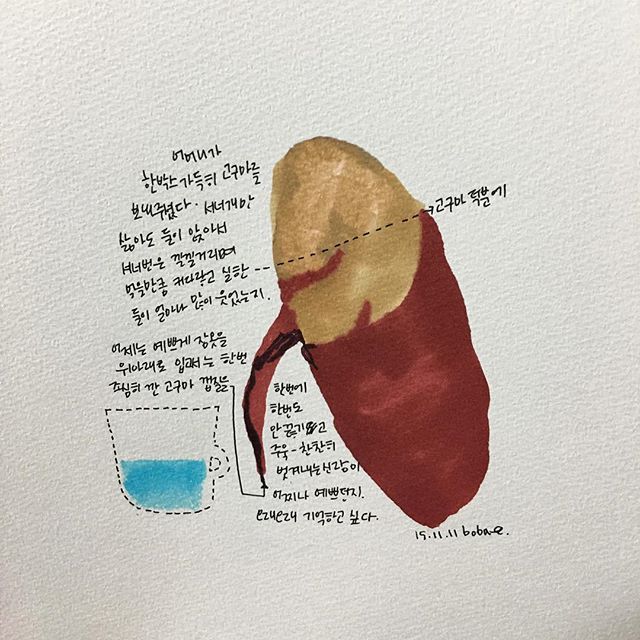 어머니가
한박스 가득히 고구마를
보내주셨다. 서너개만
삶아도 둘이 앉아서
서너번은 낄낄거리며
먹을만큼 커다랗고 실한
고구마 덕분에
둘이 얼마나 많이 웃었는지.
어제는 예쁘게 잠옷을
위아래로 한번
조심히 깐 고구마 껍질을
한번에
한번도
안 끊기고
주욱-찬찬히
벗겨내는 신랑이
어찌나 예쁘던지.
오래오래 기억하고 싶다.
15.11.11 bobae.